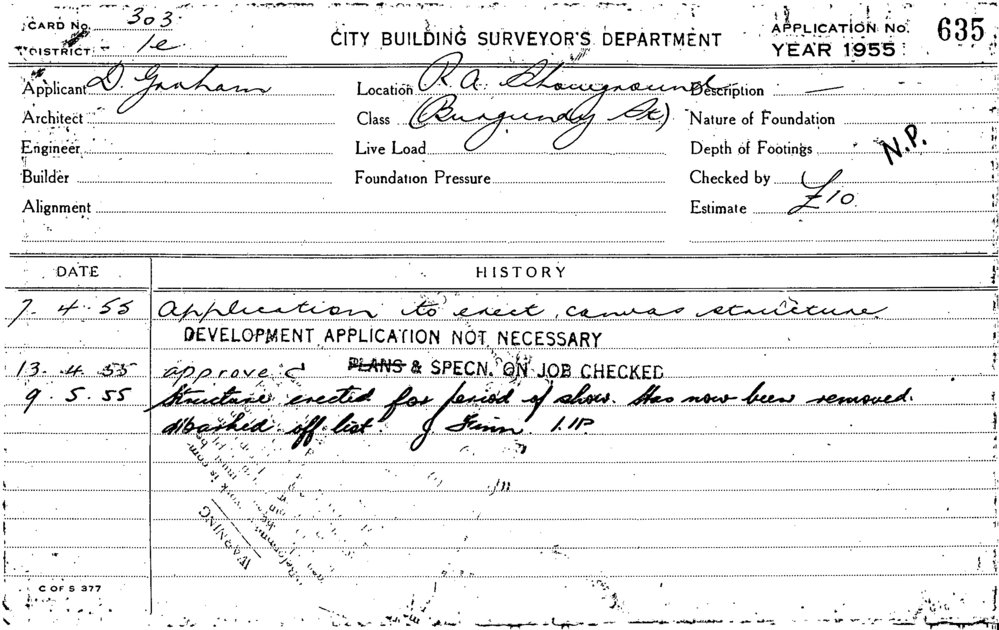 CARD No. 303
DISTRICT 1e
CITY BUILDING SURVEYOR'S DEPARTMENT
APPLICATION No. 635
YEAR 1955
Applicant D. Graham Location R.A. Showground Description —
Architect Class (Burgundy St) Nature of Foundation
Engineer Live Load Depth of Footings N.P.
Builder Foundation Pressure Checked by
Alignment Estimate £10
DATE HISTORY
7. 4. 55 Application to erect canvas structure
DEVELOPMENT APPLICATION NOT NECESSARY
13. 4. 55 approved PLANS & SPECN. ON JOB CHECKED
9. 5. 55 Structure erected for period of show. Has now been removed.
Marked off list. J Finn
WARNING
C OF S 377